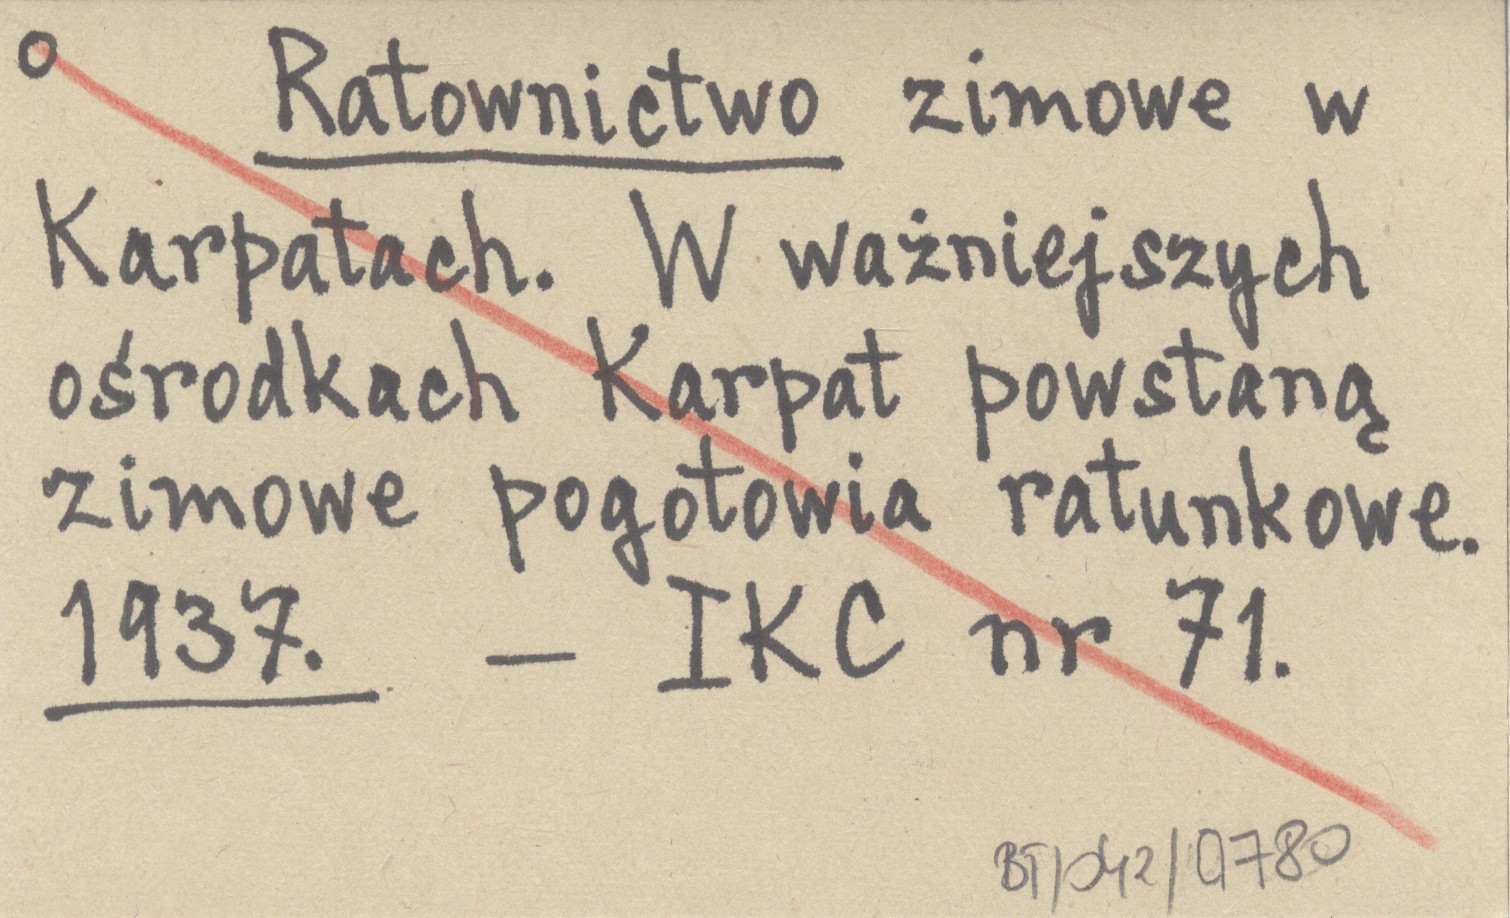 o Ratownictwo zimowe w
Karpatach. W ważniejszych
ośrodkach Karpat powstaną
zimowe pogotowia ratunkowe.
1937. — IKC nr 71.
BT/042/0780